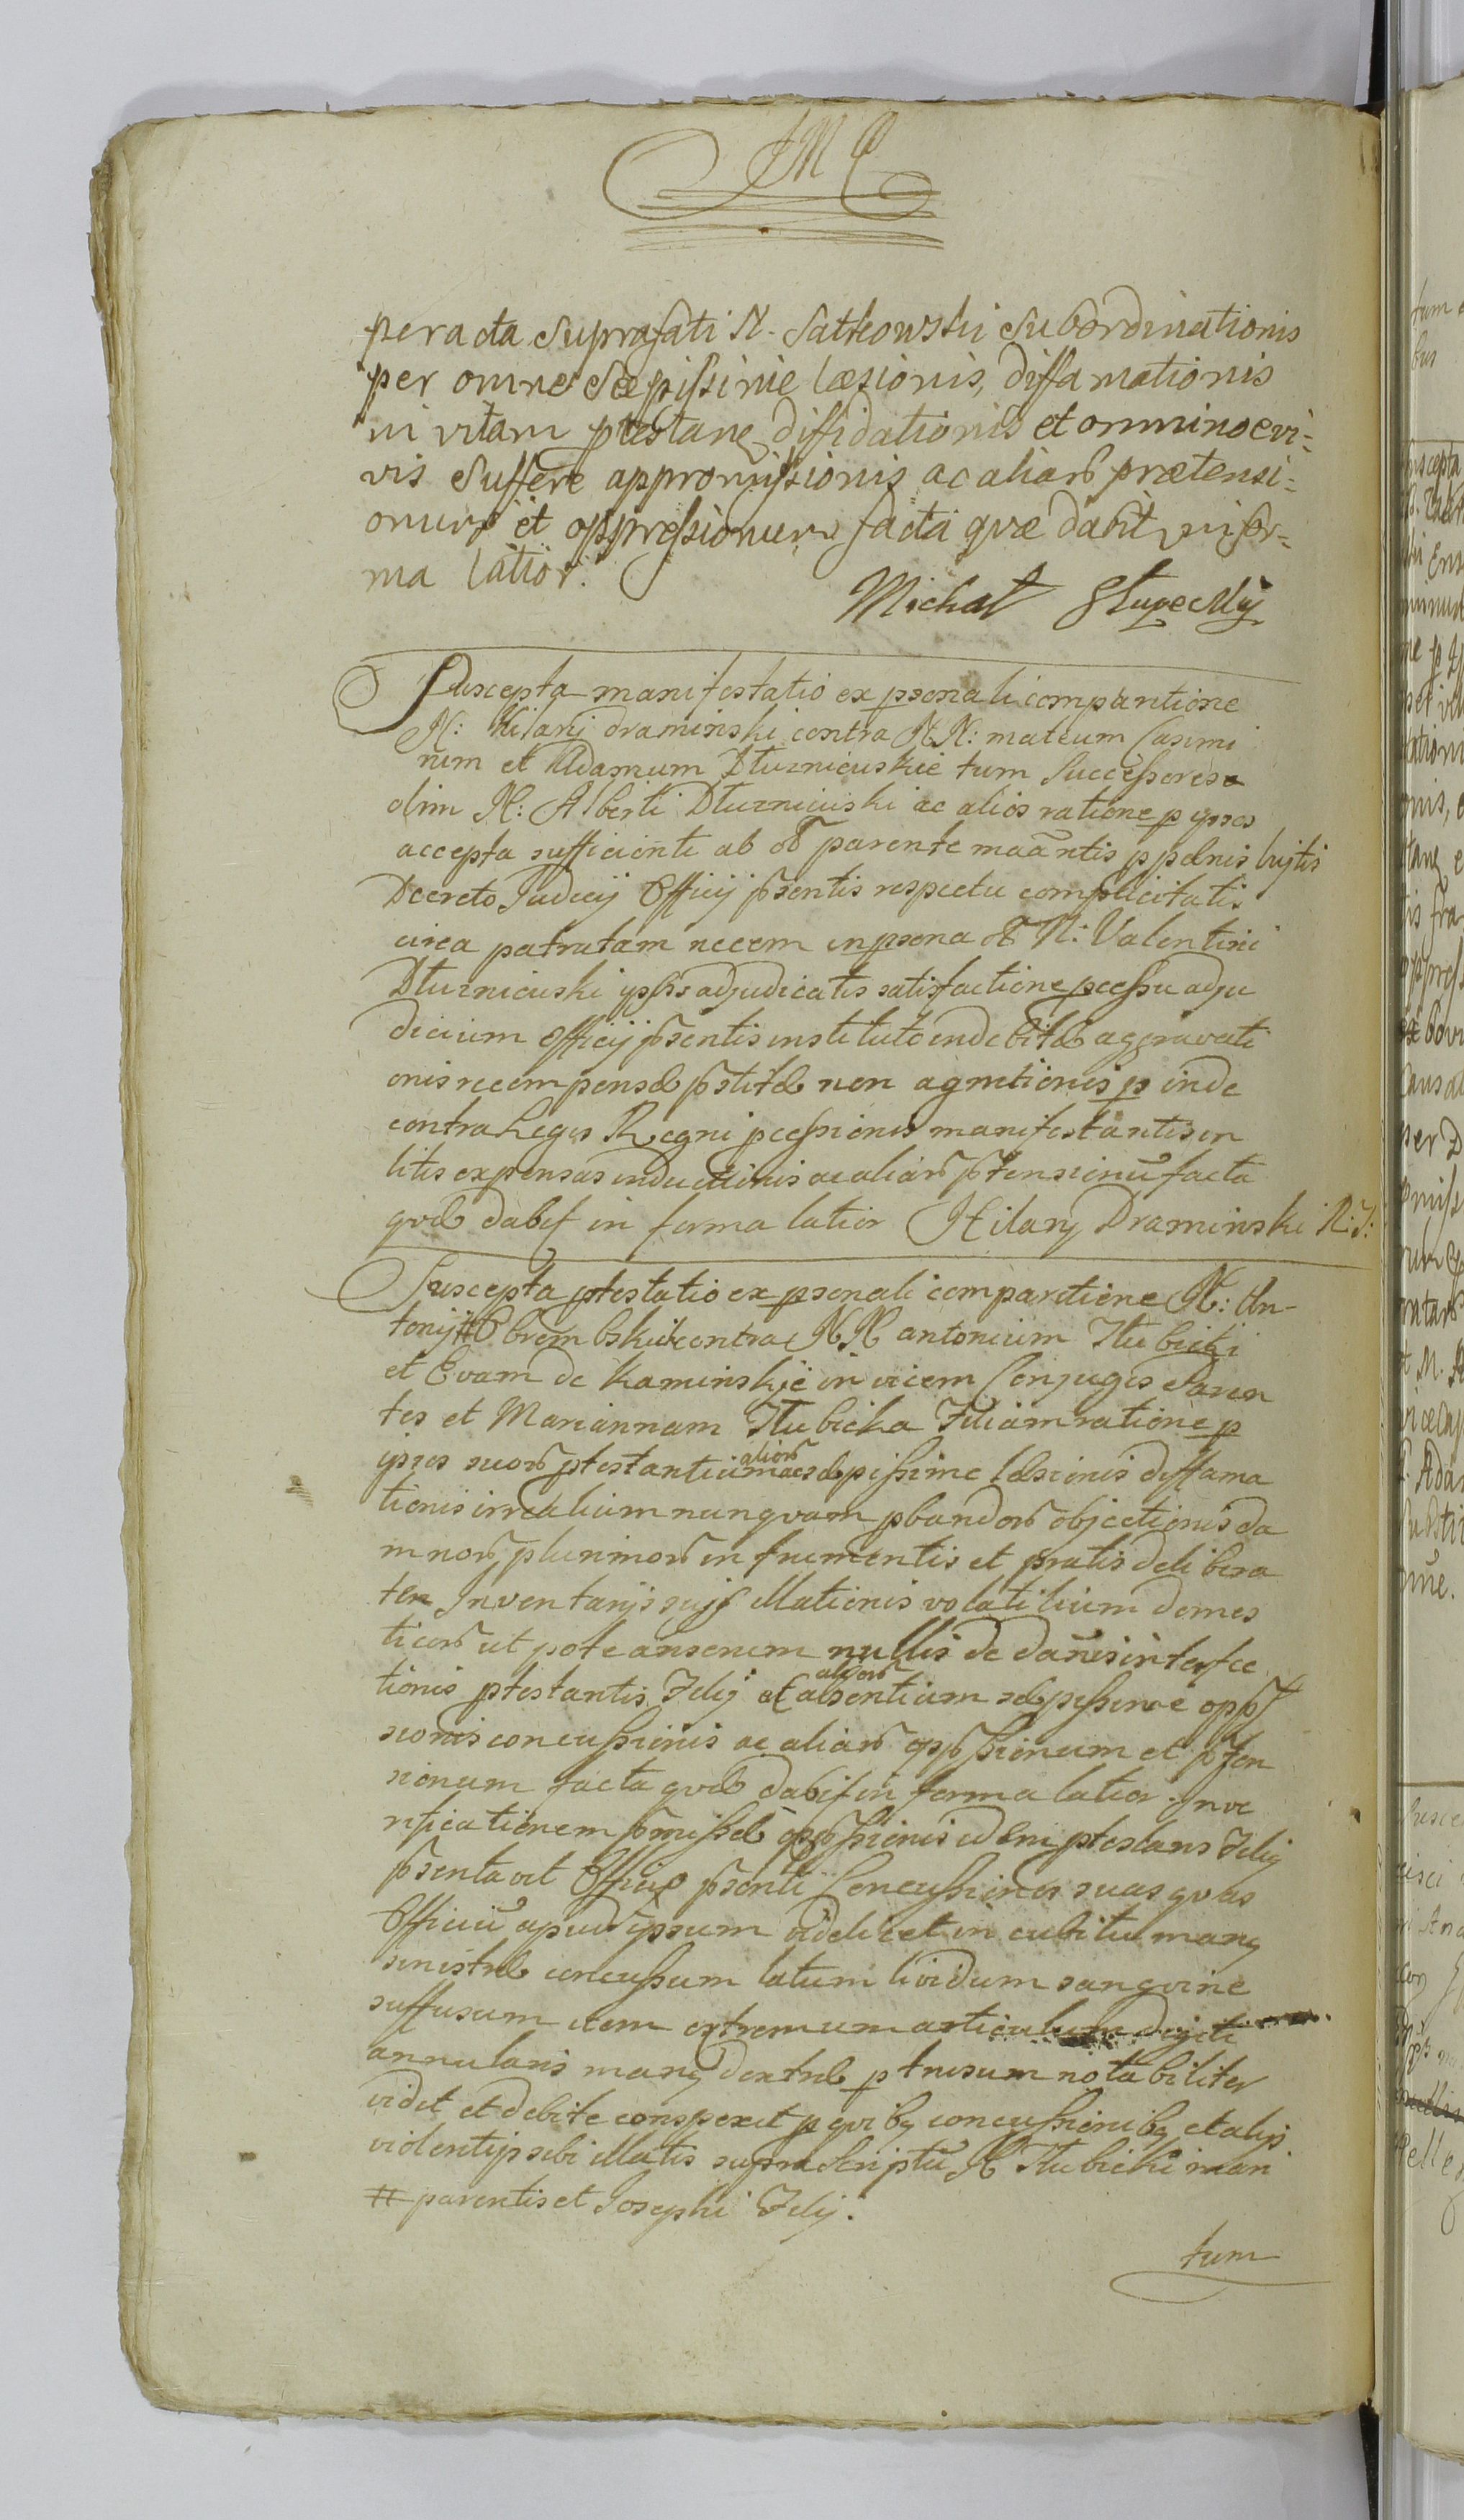 JMC
peracta suprafati N. Satkowski subordinationis
per omne sæpissime læsionis, diffamationis
in vitam ptestane diffidationis et omnino evi=
vis sufferre appromissionis ac aliarū prætensi=
onum et oppressionum facta quæ dabit in for=
ma latior.
Michał Słupecky
Suscepta manifestatio ex psonali comparitione
N: Hilarij draminski contra NN: mateum Casimi
rum et Adamum Dłuzniewskie tum Successores
olim N: Alberti Dłuzniewski ac alios ratione p ipsos
accepta sufficienti ab oł parente maantis p pænis lujtis
Decreto Judicij Officij psentis respectu complicitatis
circa patratam necem in psona oł N: Valentini
Dłuzniewski ipsis adjudicatis satisfactione pcessu adju
dicium officij psentis instituto indebitæ aggravati
onis recompensæ pstitæ non agnitionis p inde
contra Leges Regni pcessionis manifestantis in
litis expensas inductionis ac aliarū ptensionū facta
quæ dabit in forma latior Hilary Draminski R: J:
Suscepta ptestatio ex psonali comparitione N: An-
tonij # Obrembski contra NN antonium Tłubicki
et Evam de Kaminskie in vicem Conjuges Paren
tes et Mariannam Tłubicka Filiam ratione p
ipsos suorū ptestantium aliorū sæpissime læsionis diffama
tionis irrealium nunquam pbandorū objectionis da
mnorū plurimorū in frumentis et pratis delibera
ter Inventarijs suis illationis volatilium domes
ticorū ut pote anserum nullis de damnis interfec
tionis ptestantis Filij et aliorū absentium sæpissime opp
sionis concussionis ac aliarū oppssionum et pten
sionum facta quæ dabit in forma latior. In ve
rificationem pmissæ oppssionis idem ptestans Filij
psentavit Officio psenti Concussiones suas quas
Officiū apud ipsum videlicet in cubitu manq
sinistræ concussum latum lividum sanguine
suffusum item extremum articulum digiti
annularis manq dextræ ptrusum notabiliter
vidit et debite conspexit p quibq concussionibq et alijs
violentijs sibi illatis supra scriptū N Tłubicki man
# parentis et Josephi Filij.
tum